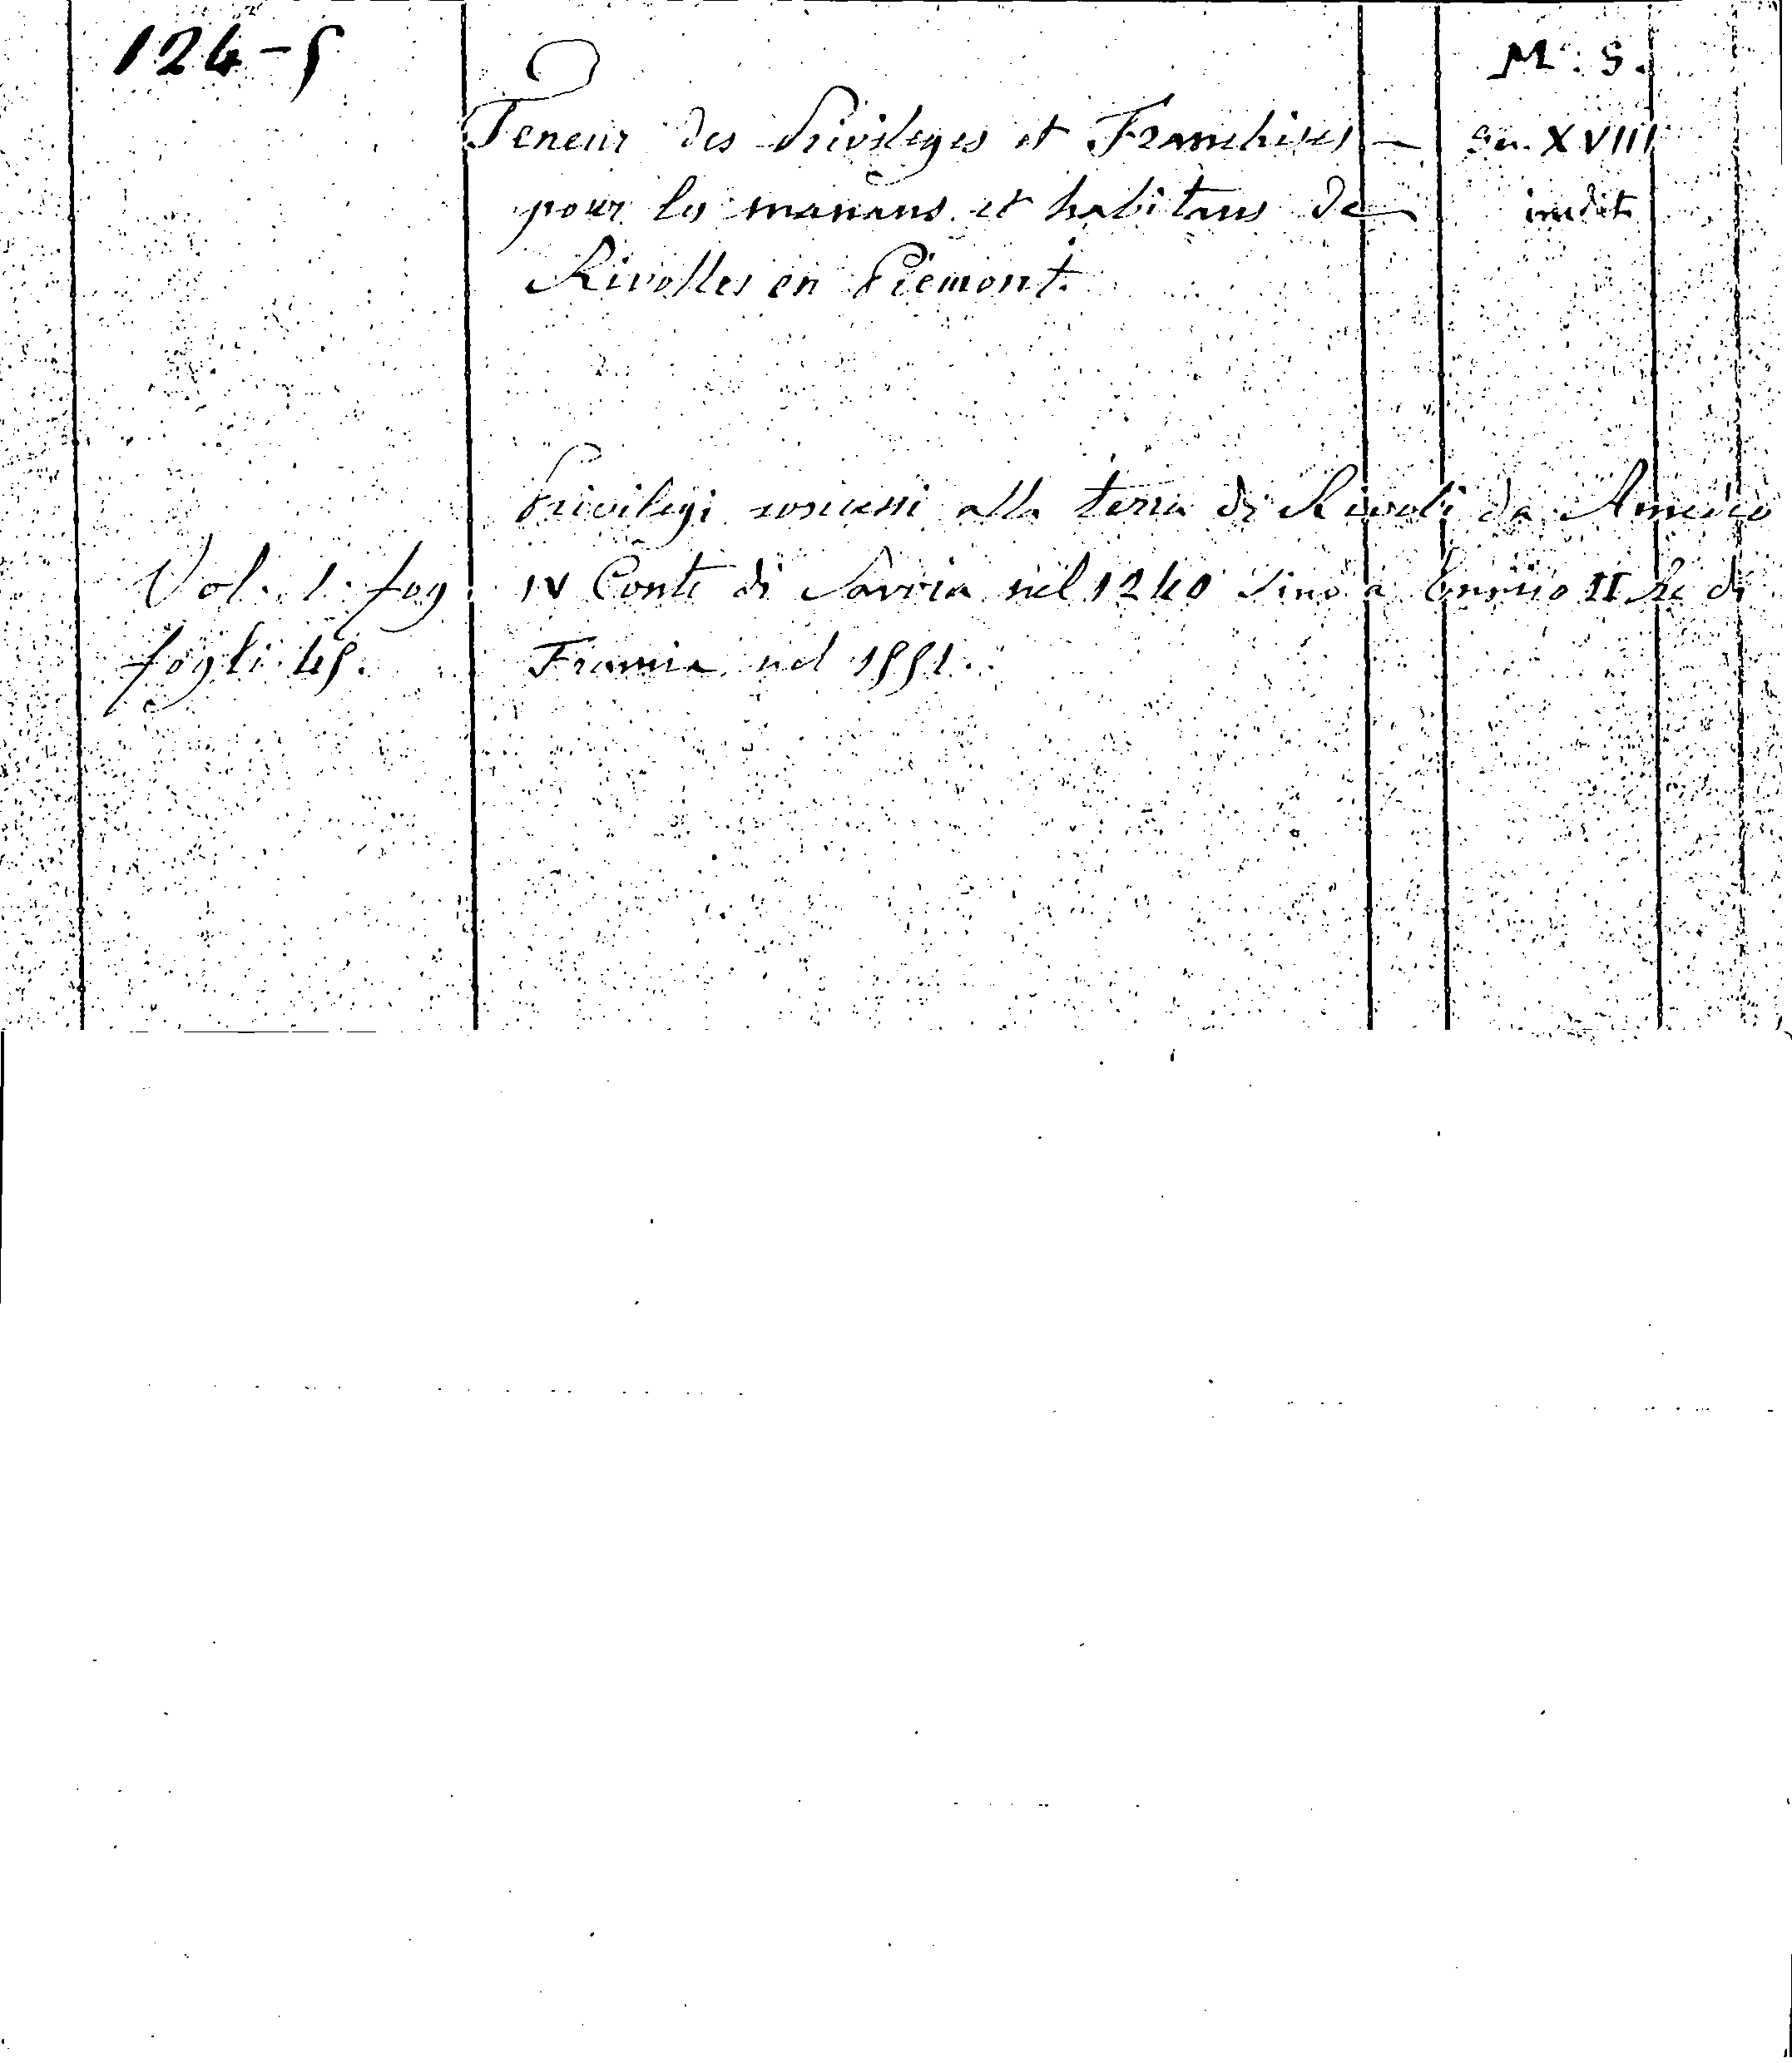 124-5
M. S.
Teneur des Privileges et Franchises — Sec. XVIII
pour les manans et habitans de inedito
Rivolles en Piemont.
Privilegi concessi alla terra di Rivoli da Amedeo
Vol. 1. fog. IV Conte di Savoia nel 1240 sino a Enrico II Re di
fogli 45. Francia nel 1551.